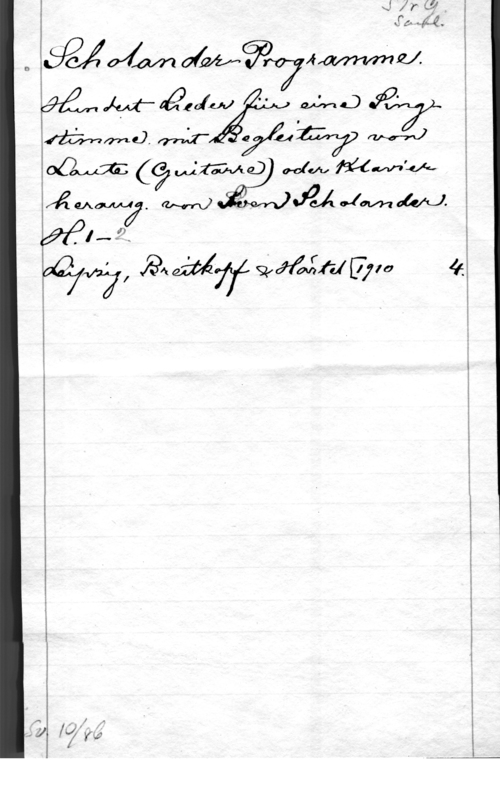 Scholander-Programme.
Hundert Lieder für eine Sing-
stimme mit Begleitung von
Laute (Guitarre) oder Klavier
herausg. von Sven Scholander.
H. 1-2
Leipzig, Breitkopf & Härtel [1910 4.
Sv. 10/86